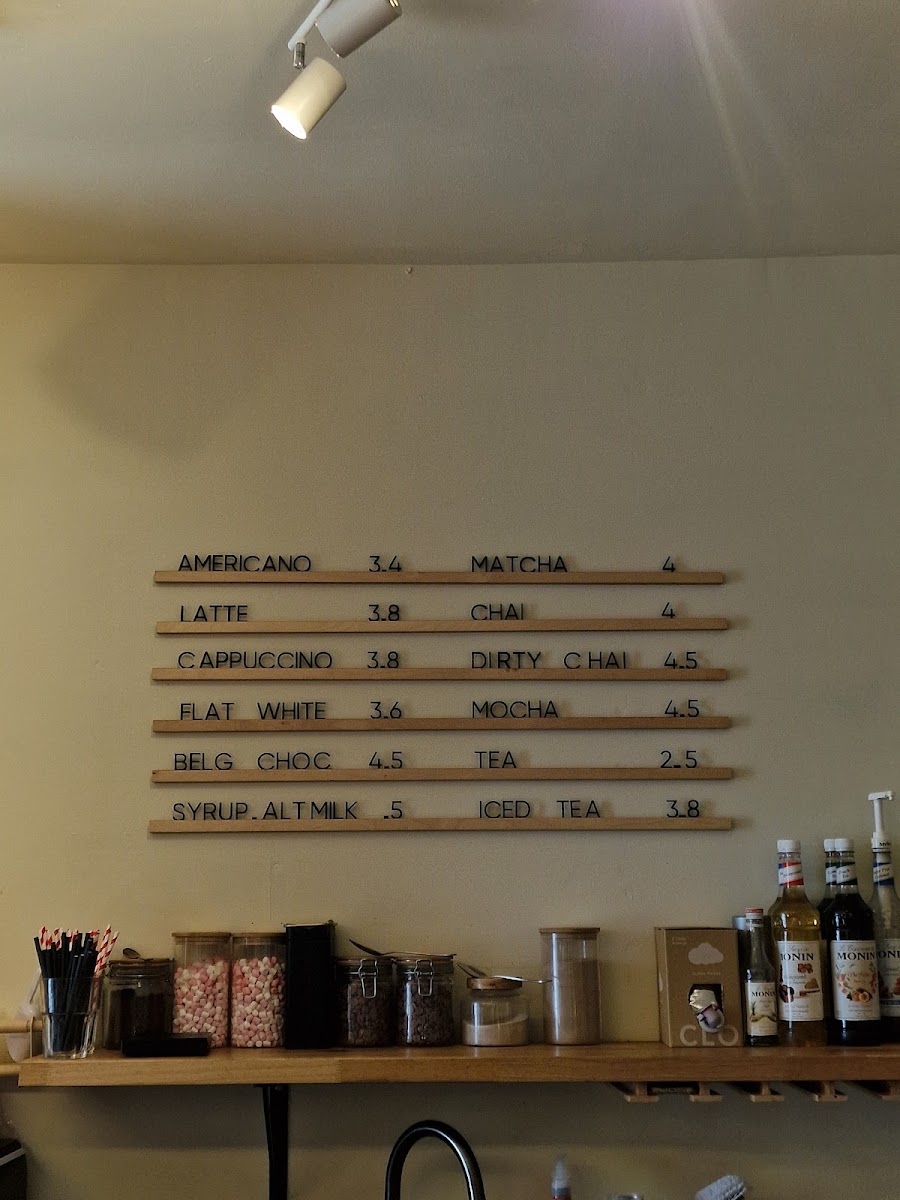 AMERICANO 3.4 MATCHA 4
LATTE 3.8 CHAI 4
CAPPUCCINO 3.8 DIRTY CHAI 4.5
FLAT WHITE 3.6 MOCHA 4.5
BELG CHOC 4.5 TEA 2.5
SYRUP.ALTMILK .5 ICED TEA 3.8
CLO
MONIN
MONIN
MONIN